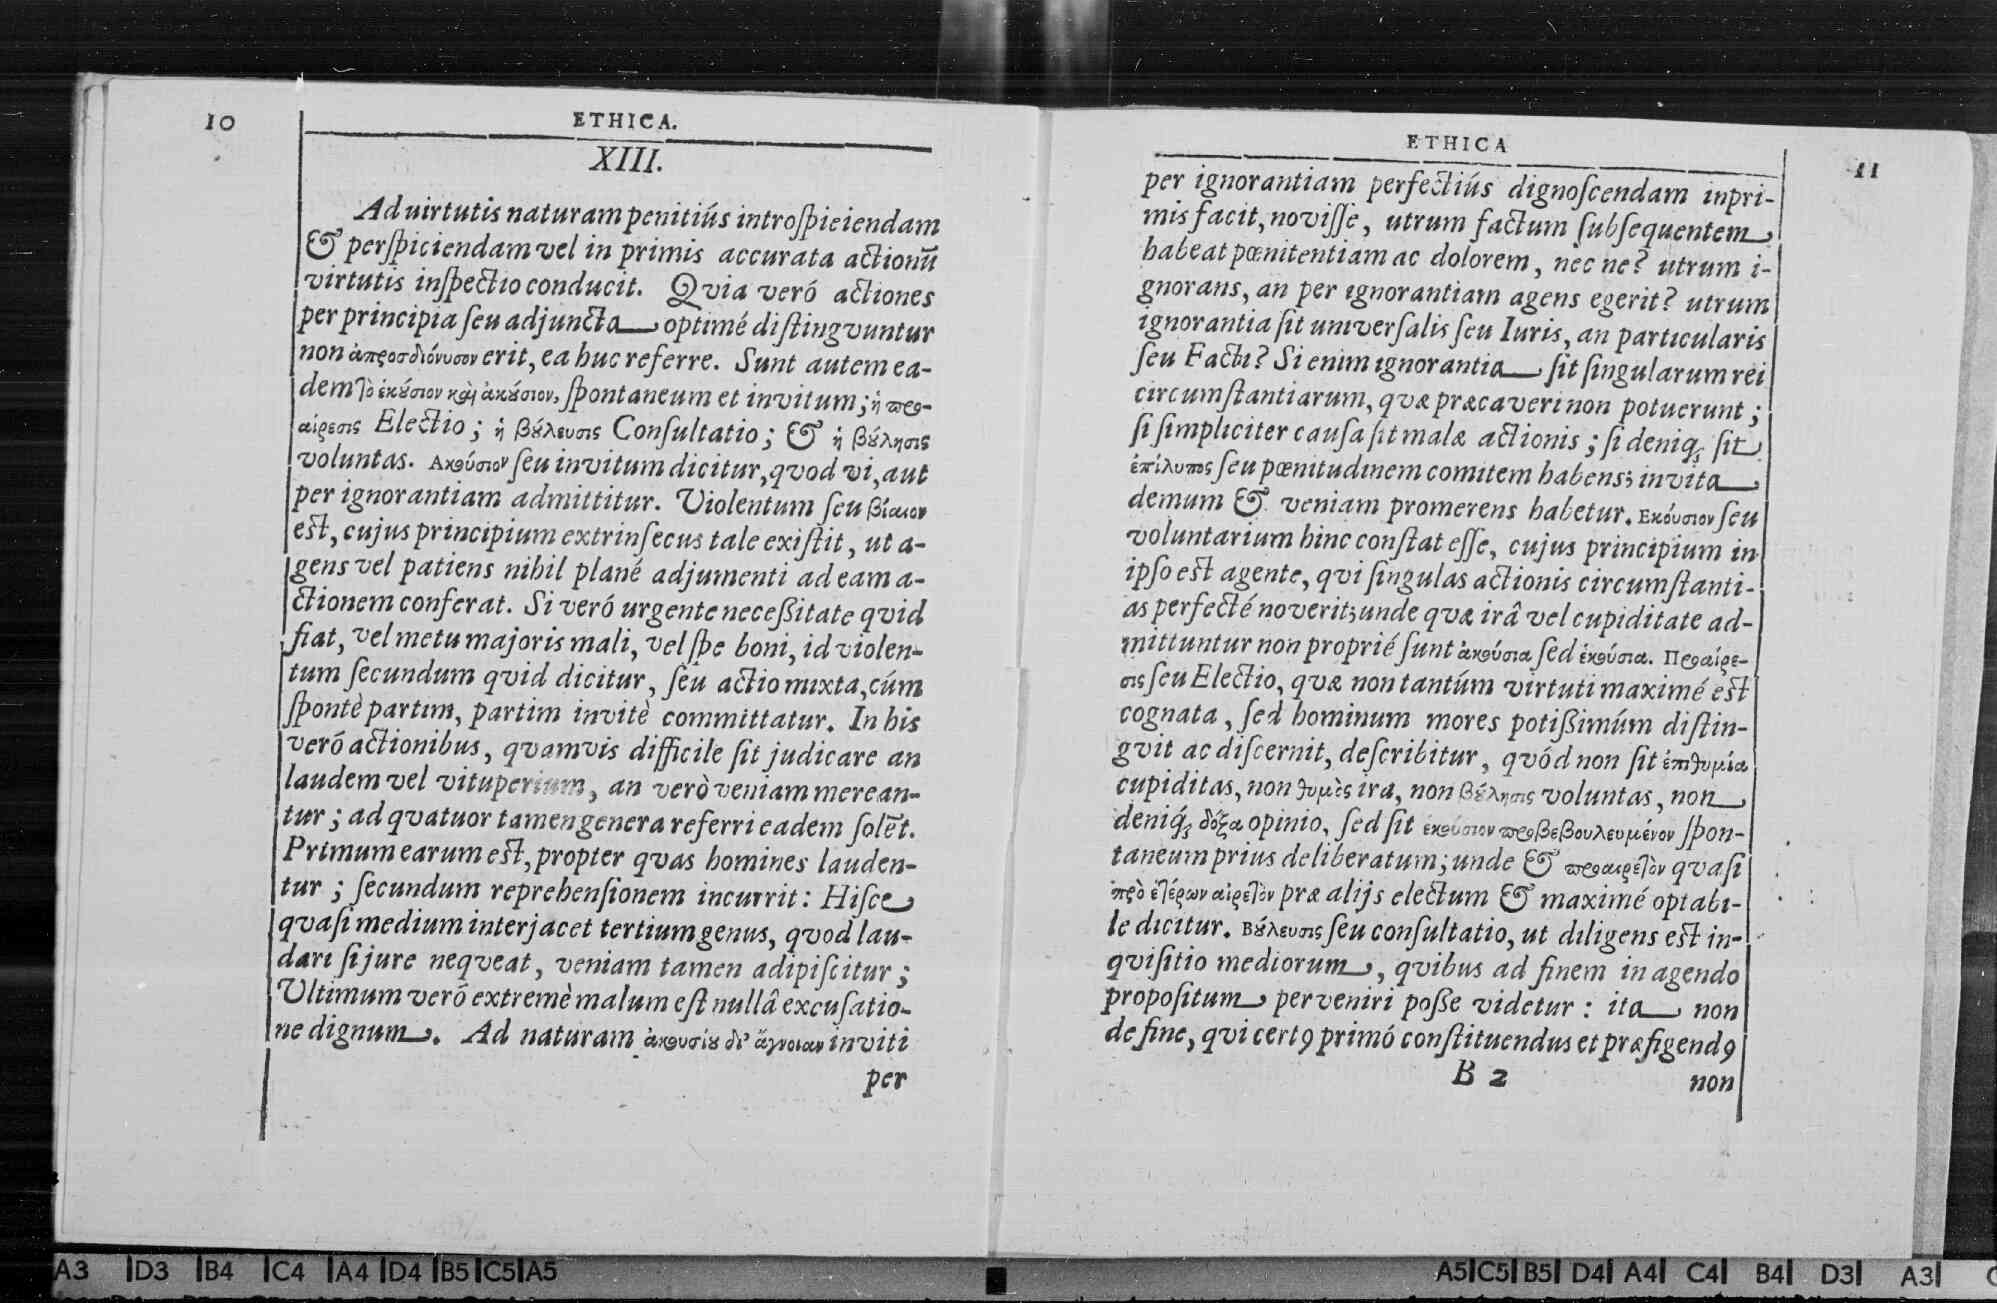 10
ETHICA.
XIII.
Ad virtutis naturam penitiús introſpieiendam
& perſpiciendam vel in primis accurata actionū
virtutis inſpectio conducit. Qvia veró actiones
per principia ſeu adjuncta optimé diſtingvuntur
non ἀπροσδιόνυσον erit, ea huc referre. Sunt autem ea-
dem τὸ ἑκούσιον καὶ ἀκούσιον, ſpontaneum et invitum; ἡ προ-
αίρεσις Electio; ἡ βούλευσις Conſultatio; & ἡ βούλησις
voluntas. Ακούσιον ſeu invitum dicitur, qvod vi, aut
per ignorantiam admittitur. Violentum ſeu βίαιον
eſt, cujus principium extrinſecus tale exiſtit, ut a-
gens vel patiens nihil plané adjumenti ad eam a-
ctionem conferat. Si veró urgente neceßitate qvid
fiat, vel metu majoris mali, vel ſpe boni, id violen-
tum ſecundum qvid dicitur, ſeu actio mixta, cúm
ſpontè partim, partim invitè committatur. In his
veró actionibus, qvamvis difficile ſit judicare an
laudem vel vituperium, an verò veniam merean-
tur; ad qvatuor tamen genera referri eadem ſolēt.
Primum earum eſt, propter qvas homines lauden-
tur; ſecundum reprehenſionem incurrit: Hiſce
qvaſi medium interjacet tertium genus, qvod lau-
dari ſi jure neqveat, veniam tamen adipiſcitur;
Ultimum veró extremè malum eſt nullâ excuſatio-
ne dignum. Ad naturam ἀκουσίου δι᾽ ἄγνοιαν inviti
per
ETHICA
11
per ignorantiam perfectiús dignoſcendam inpri-
mis facit, noviſſe, utrum factum ſubſequentem
habeat pœnitentiam ac dolorem, nec ne? utrum i-
gnorans, an per ignorantiam agens egerit? utrum
ignorantia ſit univerſalis ſeu Iuris, an particularis
ſeu Facti? Si enim ignorantia ſit ſingularum rei
circumſtantiarum, qvæ præcaveri non potuerunt;
ſi ſimpliciter cauſa ſit malæ actionis; ſi deniq; ſit
ἐπίλυπος ſeu pœnitudinem comitem habens; invita
demum & veniam promerens habetur. Εκούσιον ſeu
voluntarium hinc conſtat eſſe, cujus principium in
ipſo eſt agente, qvi ſingulas actionis circumſtanti-
as perfecté noverit; unde qvæ irâ vel cupiditate ad-
mittuntur non proprié ſunt ἀκούσια ſed ἑκούσια. Προαίρε-
σις ſeu Electio, qvæ non tantúm virtuti maximé eſt
cognata, ſed hominum mores potißimúm diſtin-
gvit ac diſcernit, deſcribitur, qvód non ſit ἐπιθυμία
cupiditas, non θυμὸς ira, non βούλησις voluntas, non
deniq́; δόξα opinio, ſed ſit ἑκούσιον προβεβουλευμένον ſpon-
taneum prius deliberatum; unde & προαιρετὸν qvaſi
πρὸ ἑτέρων αἱρετὸν præ alijs electum & maximé optabi-
le dicitur. Βούλευσις ſeu conſultatio, ut diligens eſt in-
qviſitio mediorum, qvibus ad finem in agendo
propoſitum perveniri poſſe videtur: ita non
de fine, qvi certꝰ primó conſtituendus et præfigendꝰ
B 2
non
A3 D3 B4 C4 A4 D4 B5 C5 A5
A5 C5 B5 D4 A4 C4 B4 D3 A3